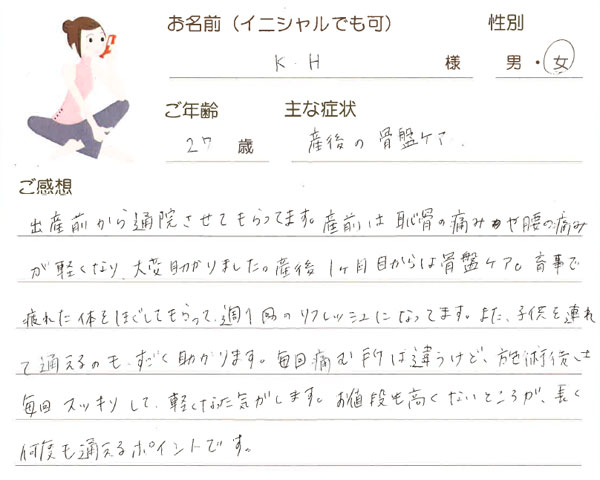 お名前（イニシャルでも可） 性別
K.H 様 男・女
ご年齢 主な症状
27 歳 産後の骨盤ケア.
ご感想
出産前から通院させてもらってます。産前は恥骨の痛みや腰の痛み
が軽くなり、大変助かりました。産後1ヶ月目からは骨盤ケア。育事で
疲れた体をほぐしてもらって、週1回のリフレッシュになってます。また、子供を連れ
て通えるのも、すごく助かります。毎回痛む所は違うけど、施術後は
毎回スッキリして、軽くなった気がします。お値段も高くないところが、長く
何度も通えるポイントです。